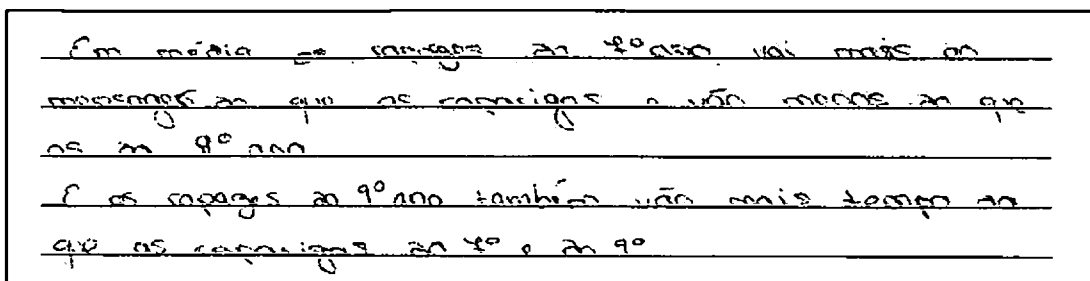 Em média os rapazes do 7º ano vai mais ao
do que as raparigas e vão menos do que
os do 9º ano
E os rapazes do 9º ano também vão mais tempo do
que as raparigas do 7º e do 9º